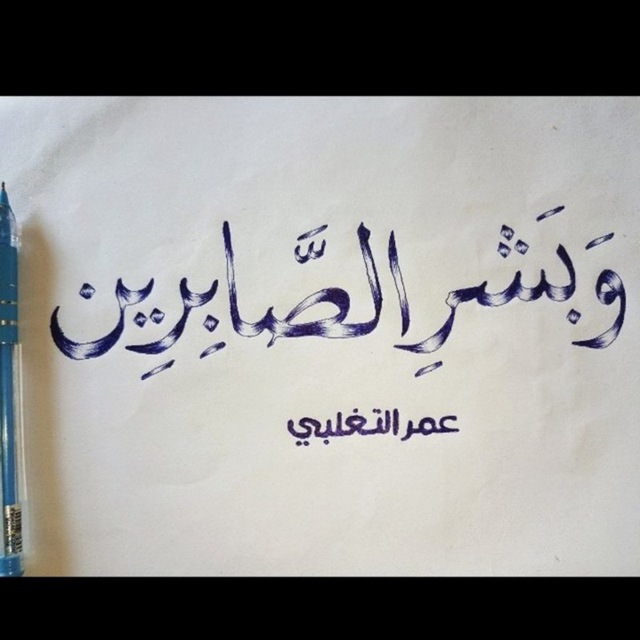 وَبَشرِ الصَّابِرِين
عمر التغلبي